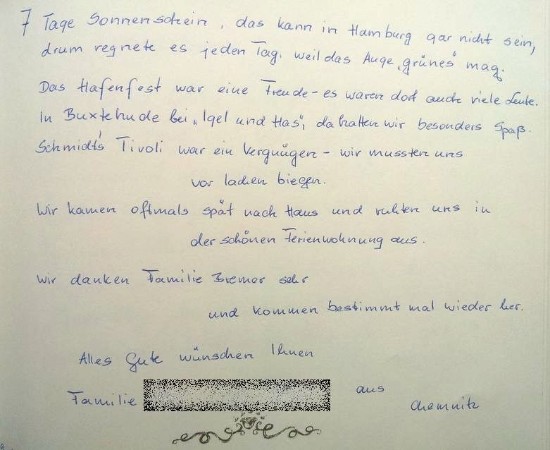 7 Tage Sonnenschein, das kann in Hamburg gar nicht sein,
drum regnete es jeden Tag, weil das Auge „grünes" mag.
Das Hafenfest war eine Freude - es waren dort auch viele Leute.
In Buxtehude bei „Igel und Has", da hatten wir besonders Spaß.
Schmidt's Tivoli war ein Vergnügen - wir mussten uns
vor lachen biegen.
Wir kamen oftmals spät nach Haus und ruhten uns in
der schönen Ferienwohnung aus.
Wir danken Familie Bremer sehr
und kommen bestimmt mal wieder her.
Alles Gute wünschen Ihnen
Familie aus
Chemnitz